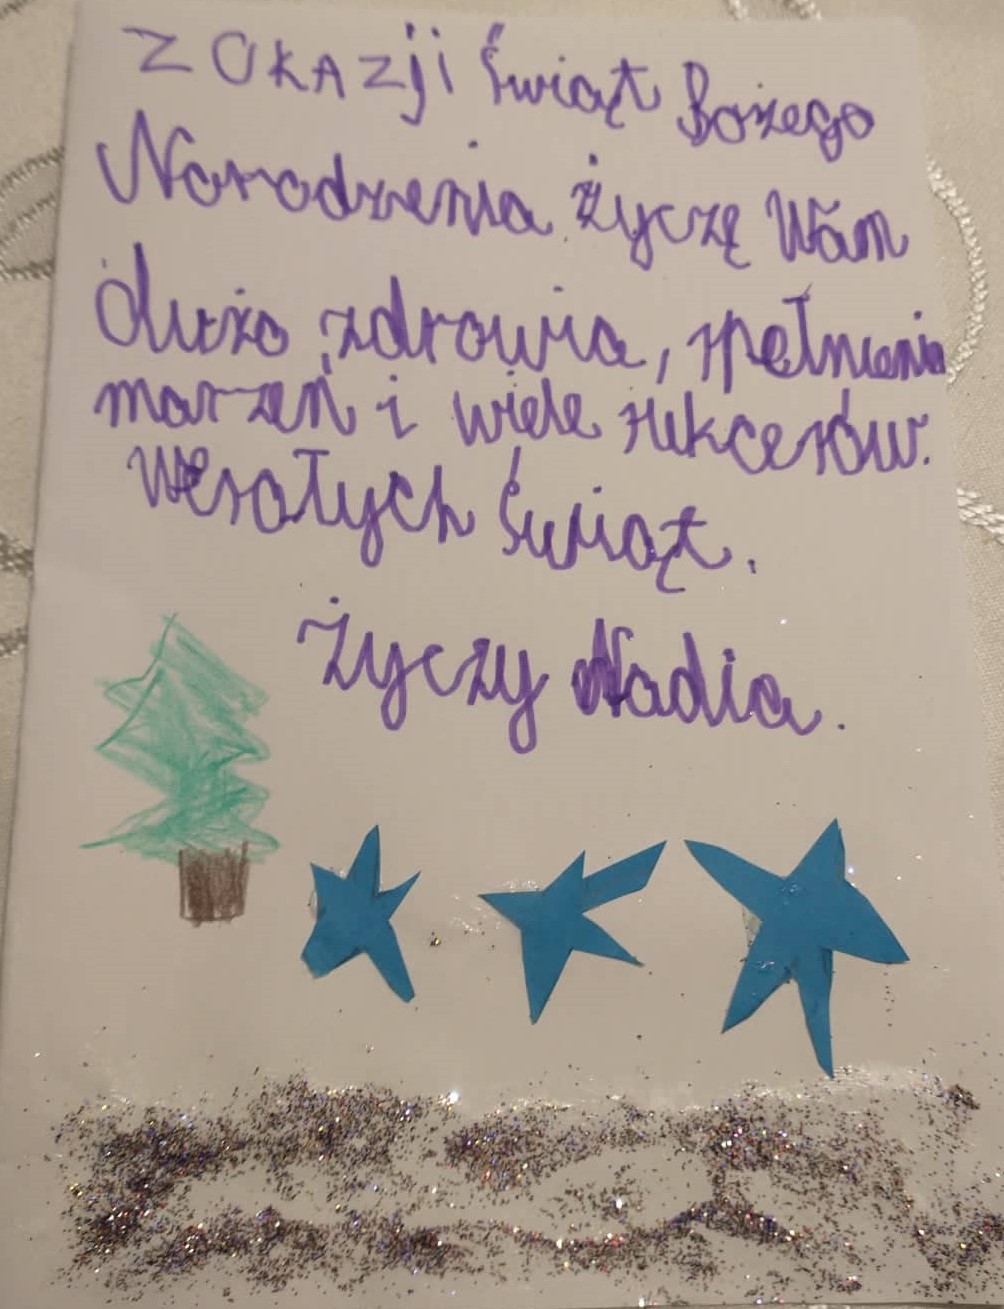 Z OKAZji Świąt Bożego
Narodzenia życzę Wam
dużo zdrowia, spełnienia
marzeń i wiele sukcesów.
Wesołych Świąt.
Życzy Nadia.